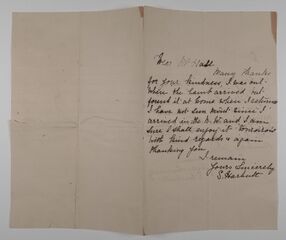 Dear Mr Hall
Many thanks
for your kindness, I was out
when the lamb arrived but
found it at home when I returned
I have not seen mint since I
arrived in the N. W. and I am
sure I shall enjoy it
with kind regards & again
thanking you
I remain
Yours Sincerely
S.